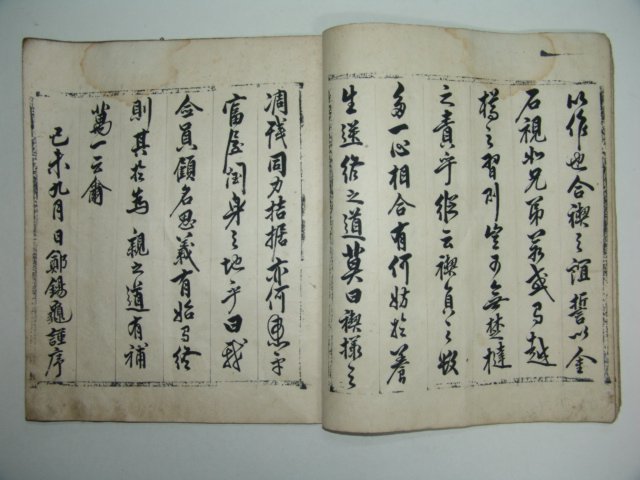 以作也合禊之誼誓以金
石視如兄弟若或馬越
楊之習則豈可無楚撻
之責乎縱云禊員之數
多一心相合有何妨於養
生送終之道莫曰禊樣之
凋殘同力拮据亦何患乎
富屋潤身之地乎曰我
合員顧名思義有始有終
則其在爲親之道有補
萬一云爾
己未九月日鄭錫龜謹序